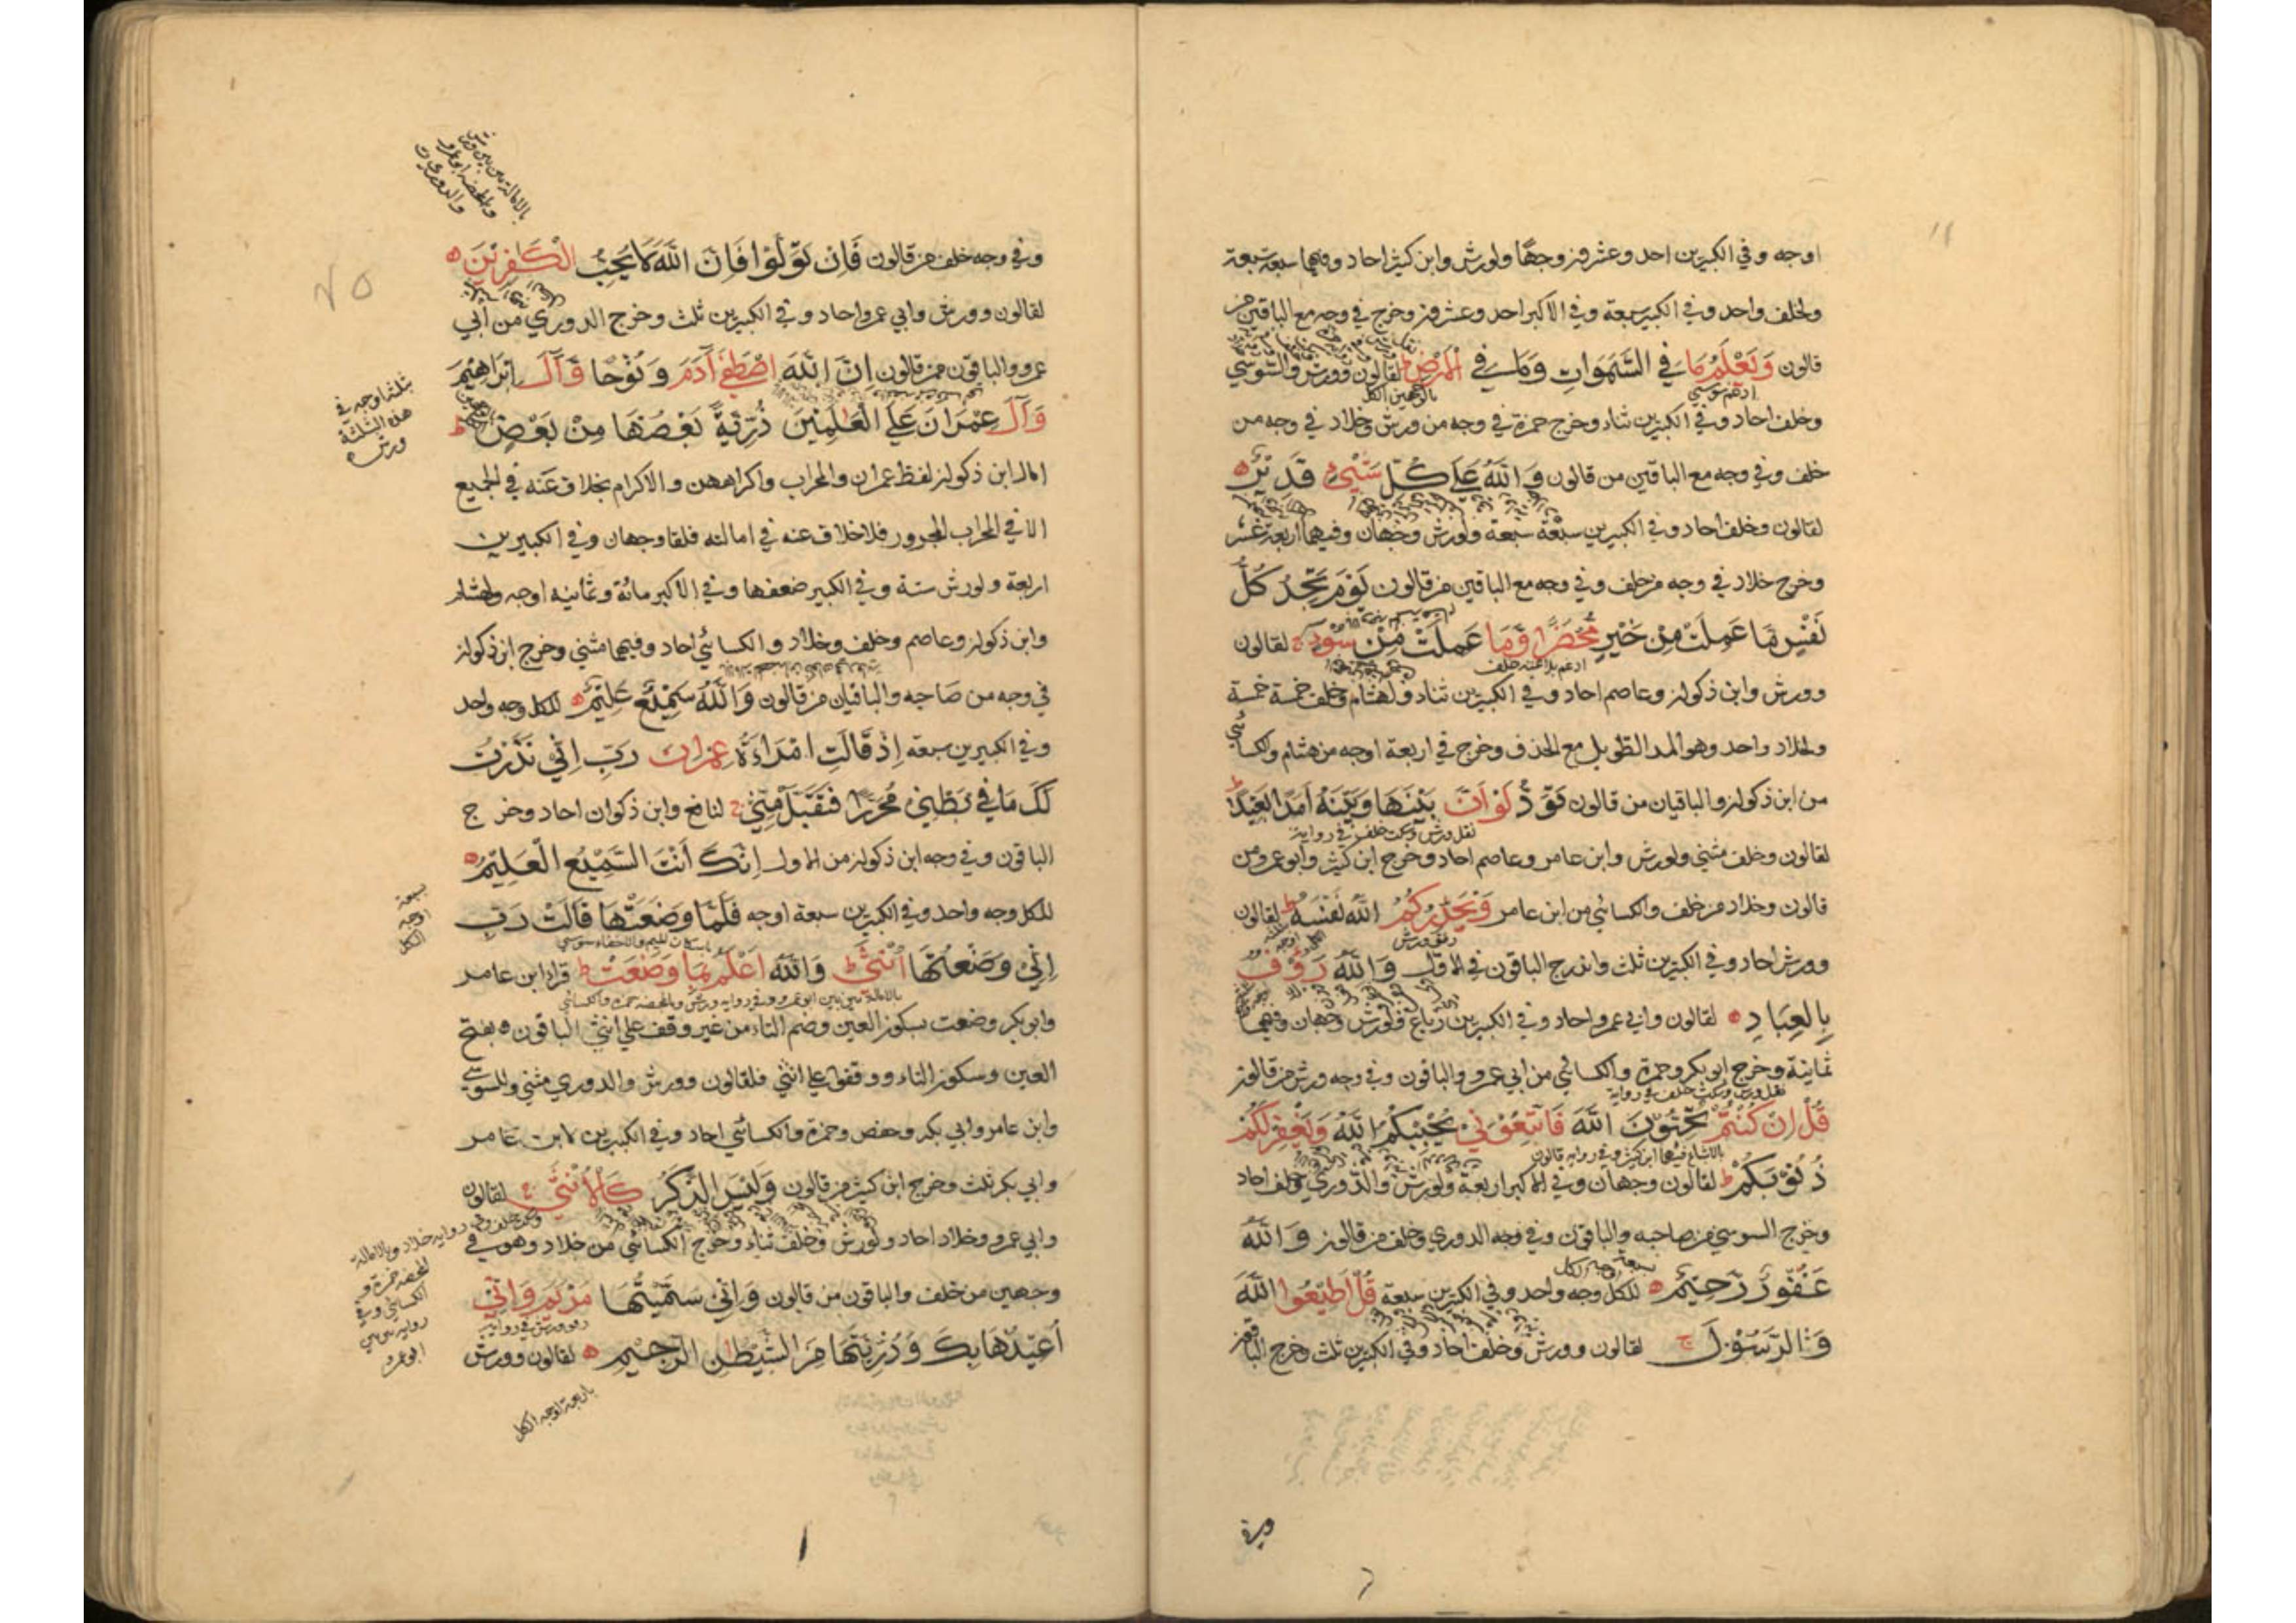 اوجه وفي الكبيرين احد وعشرون وجهًا ولورش وابن كثير احاد وفيهما سبعة سبعة
ولخلف واحد وفي الكبير سبعة وفي الاكبر احد وعشرون وخرج في وجه مع الباقين من
قالون وَيَعْلَمُ مَا فِي السَّمَوَاتِ وَمَا فِي الْاَرْضِ ط لقالون وورش والسوسي
وخلف احاد وفي الكبيرين ثناء وخرج حمزة في وجه من ورش وخلاد في وجه من
خلف وفي وجه مع الباقين من قالون وَاللّٰهُ عَلَى كُلِّ شَيْءٍ قَدِيْرٌ ه
لقالون وخلف احاد وفي الكبيرين سبعة سبعة ولورش وجهان وفيهما اربعة عشر
وخرج خلاد في وجه من خلف وفي وجه مع الباقين من قالون يَوْمَ تَجِدُ كُلُّ
نَفْسٍ مَا عَمِلَتْ مِنْ خَيْرٍ مُحْضَرًا وَّمَا عَمِلَتْ مِنْ سُوْءٍ ج لقالون
ادغم بلا غنة خلف
وورش وابن ذكوان وعاصم احاد وفي الكبيرين ثناء ولهشام وخلف خمسة خمسة
ولخلاد واحد وهو المد الطويل مع الحذف وخرج في اربعة اوجه من هشام والكسائي
من ابن ذكوان والباقيان من قالون تَوَدُّ لَوْ اَنَّ بَيْنَهَا وَبَيْنَهٗ اَمَدًا بَعِيْدًا ط
نقل ورش وسكت خلف في رواية
لقالون وخلف مثنى ولورش وابن عامر وعاصم احاد وخرج ابن كثير وابو عمرو من
قالون وخلاد من خلف والكسائي من ابن عامر وَيُحَذِّرُكُمُ اللّٰهُ نَفْسَهٗ ط لقالون
رقق ورش
وورش احاد وفي الكبيرين ثلث واندرج الباقون في الاول وَاللّٰهُ رَؤُفٌ
بِالْعِبَادِ ه لقالون وابي عمرو احاد وفي الكبيرين رباع ولورش وجهان وفيهما
ثمانية وخرج ابو بكر وحمزة والكسائي من ابي عمرو والباقون وفي وجه ورش من قالون
نقل ورش وسكت خلف في رواية
قُلْ اِنْ كُنْتُمْ تُحِبُّوْنَ اللّٰهَ فَاتَّبِعُوْنِيْ يُحْبِبْكُمُ اللّٰهُ وَيَغْفِرْلَكُمْ
بالاشباع فيهما ابن كثير وفي رواية قالون
ذُنُوْبَكُمْ ط لقالون وجهان وفي الاكبر اربعة ولورش والدوري وخلف احاد
وخرج السوسي من صاحبه والباقون وفي وجه الدوري وخلف من قالون وَاللّٰهُ
سبعة اوجه الكل
غَفُوْرٌ رَّحِيْمٌ ه للكل وجه واحد وفي الكبيرين سبعة قُلْ اَطِيْعُوا اللّٰهَ
وَالرَّسُوْلَ ج لقالون وورش وخلف احاد وفي الكبيرين ثلث وخرج الباقون
وفي
٧٥
وفي وجه خلف من قالون فَاِنْ تَوَلَّوْا فَاِنَّ اللّٰهَ لَا يُحِبُّ الْكٰفِرِيْنَ ه
لقالون وورش وابي عمرو احاد وفي الكبيرين ثلث وخرج الدوري من ابي
عمرو والباقون من قالون اِنَّ اللّٰهَ اصْطَفٰى اٰدَمَ وَنُوْحًا وَّاٰلَ اِبْرَاهِيْمَ
وَاٰلَ عِمْرَانَ عَلَى الْعٰلَمِيْنَ ذُرِّيَّةً بَعْضُهَا مِنْ بَعْضٍ ط
بثلثة اوجه في
هذه الثلثة
ورش
امال ابن ذكوان لفظ عمران والمحراب واكراههن والاكرام بخلاف عنه في الجميع
الا في المحراب المجرور فلا خلاف عنه في امالته فلقا وجهان وفي الكبيرين
اربعة ولورش ستة وفي الكبير ضعفها وفي الاكبر مائة وثمانية اوجه ولهشام
وابن ذكوان وعاصم وخلف وخلاد والكسائي احاد وفيهما مثنى وخرج ابن ذكوان
في وجه من صاحبه والباقيان من قالون وَاللّٰهُ سَمِيْعٌ عَلِيْمٌ ه للكل وجه واحد
وفي الكبيرين سبعة اِذْ قَالَتِ امْرَاَةُ عِمْرَانَ رَبِّ اِنِّيْ نَذَرْتُ
لَكَ مَا فِيْ بَطْنِيْ مُحَرَّرًا فَتَقَبَّلْ مِنِّيْ ج لنافع وابن ذكوان احاد وخرج
الباقون وفي وجه ابن ذكوان من الاول اِنَّكَ اَنْتَ السَّمِيْعُ الْعَلِيْمُ ه
سبعة
اوجه
الكل
للكل وجه واحد وفي الكبيرين سبعة اوجه فَلَمَّا وَضَعَتْهَا قَالَتْ رَبِّ
باسكان الميم والاخفاء سوسي
اِنِّيْ وَضَعْتُهَا اُنْثٰى ط وَاللّٰهُ اَعْلَمُ بِمَا وَضَعَتْ ط قرا ابن عامر
بالامالة بين بين ابو عمرو وفي رواية ورش والمحضة حمزة والكسائي
وابو بكر وضعت بسكون العين وضم التاء من غير وقف على انثى الباقون بفتح
العين وسكون التاء ووقفوا على انثى فلقالون وورش والدوري مثنى وللسوسي
وابن عامر وابي بكر وحفص وحمزة والكسائي احاد وفي الكبيرين لابن عامر
وابي بكر ثلث وخرج ابن كثير من قالون وَلَيْسَ الذَّكَرُ كَالْاُنْثٰى ج لقالون
وابي عمرو وخلاد احاد ولورش وخلف ثناء وخرج الكسائي من خلاد وهو في
وسكت خلف وفي رواية خلاد وبالامالة
المحضة حمزة و
الكسائي وفي
رواية سوسي
ابو عمرو
وجهين من خلف والباقون من قالون وَاِنِّيْ سَمَّيْتُهَا مَرْيَمَ وَاِنِّيْ
اُعِيْذُهَا بِكَ وَذُرِّيَّتَهَا مِنَ الشَّيْطٰنِ الرَّجِيْمِ ه لقالون وورش
باربعة اوجه الكل